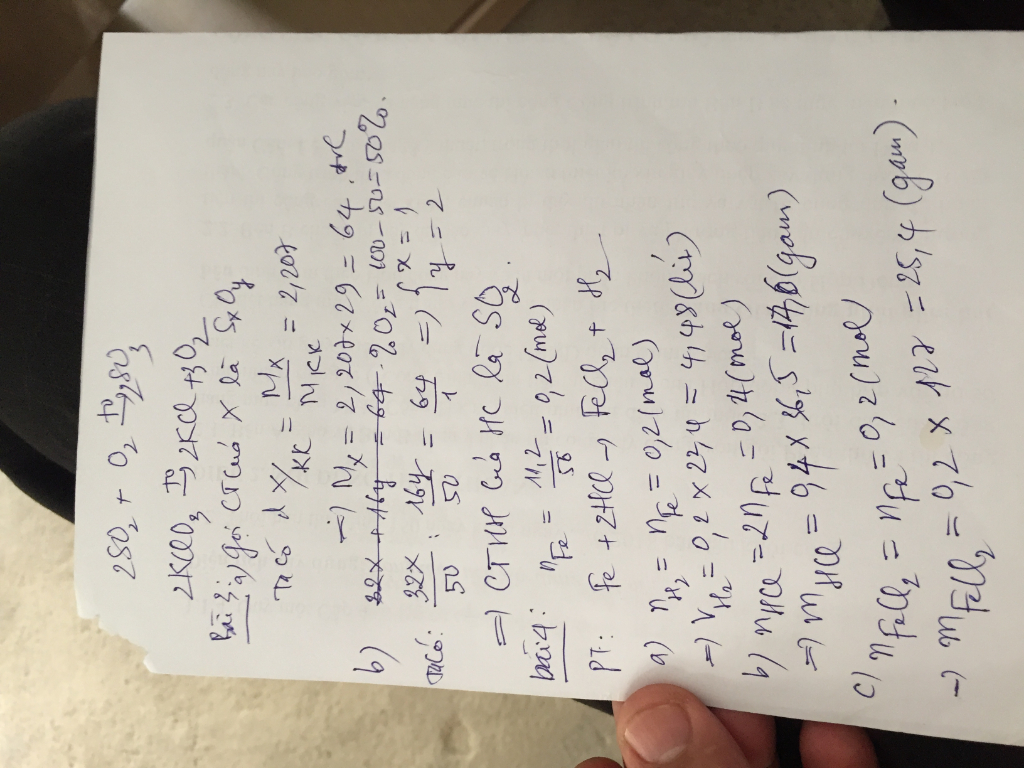 2SO2 + O2 t°→ 2SO3
2KClO3 t°→ 2KCl + 3O2
Bài 3: a) Gọi CT của X là SxOy
Ta có d X/KK = MX/MKK = 2,207
=> MX = 2,207 x 29 = 64 đvC
b) 32x + 16y = 64. %O2 = 100 - 50 = 50%.
Ta có: 32x/50 : 16y/50 = 64/1 => { x = 1 y = 2
=> CTHH của HC là SO2.
bài 4: nFe = 11,2/56 = 0,2 (mol)
PT: Fe + 2HCl → FeCl2 + H2
a) nH2 = nFe = 0,2 (mol)
=> VH2 = 0,2 x 22,4 = 4,48 (lít)
b) nHCl = 2nFe = 0,4 (mol)
=> mHCl = 0,4 x 36,5 = 14,6 (gam)
c) nFeCl2 = nFe = 0,2 (mol)
=> mFeCl2 = 0,2 x 127 = 25,4 (gam).